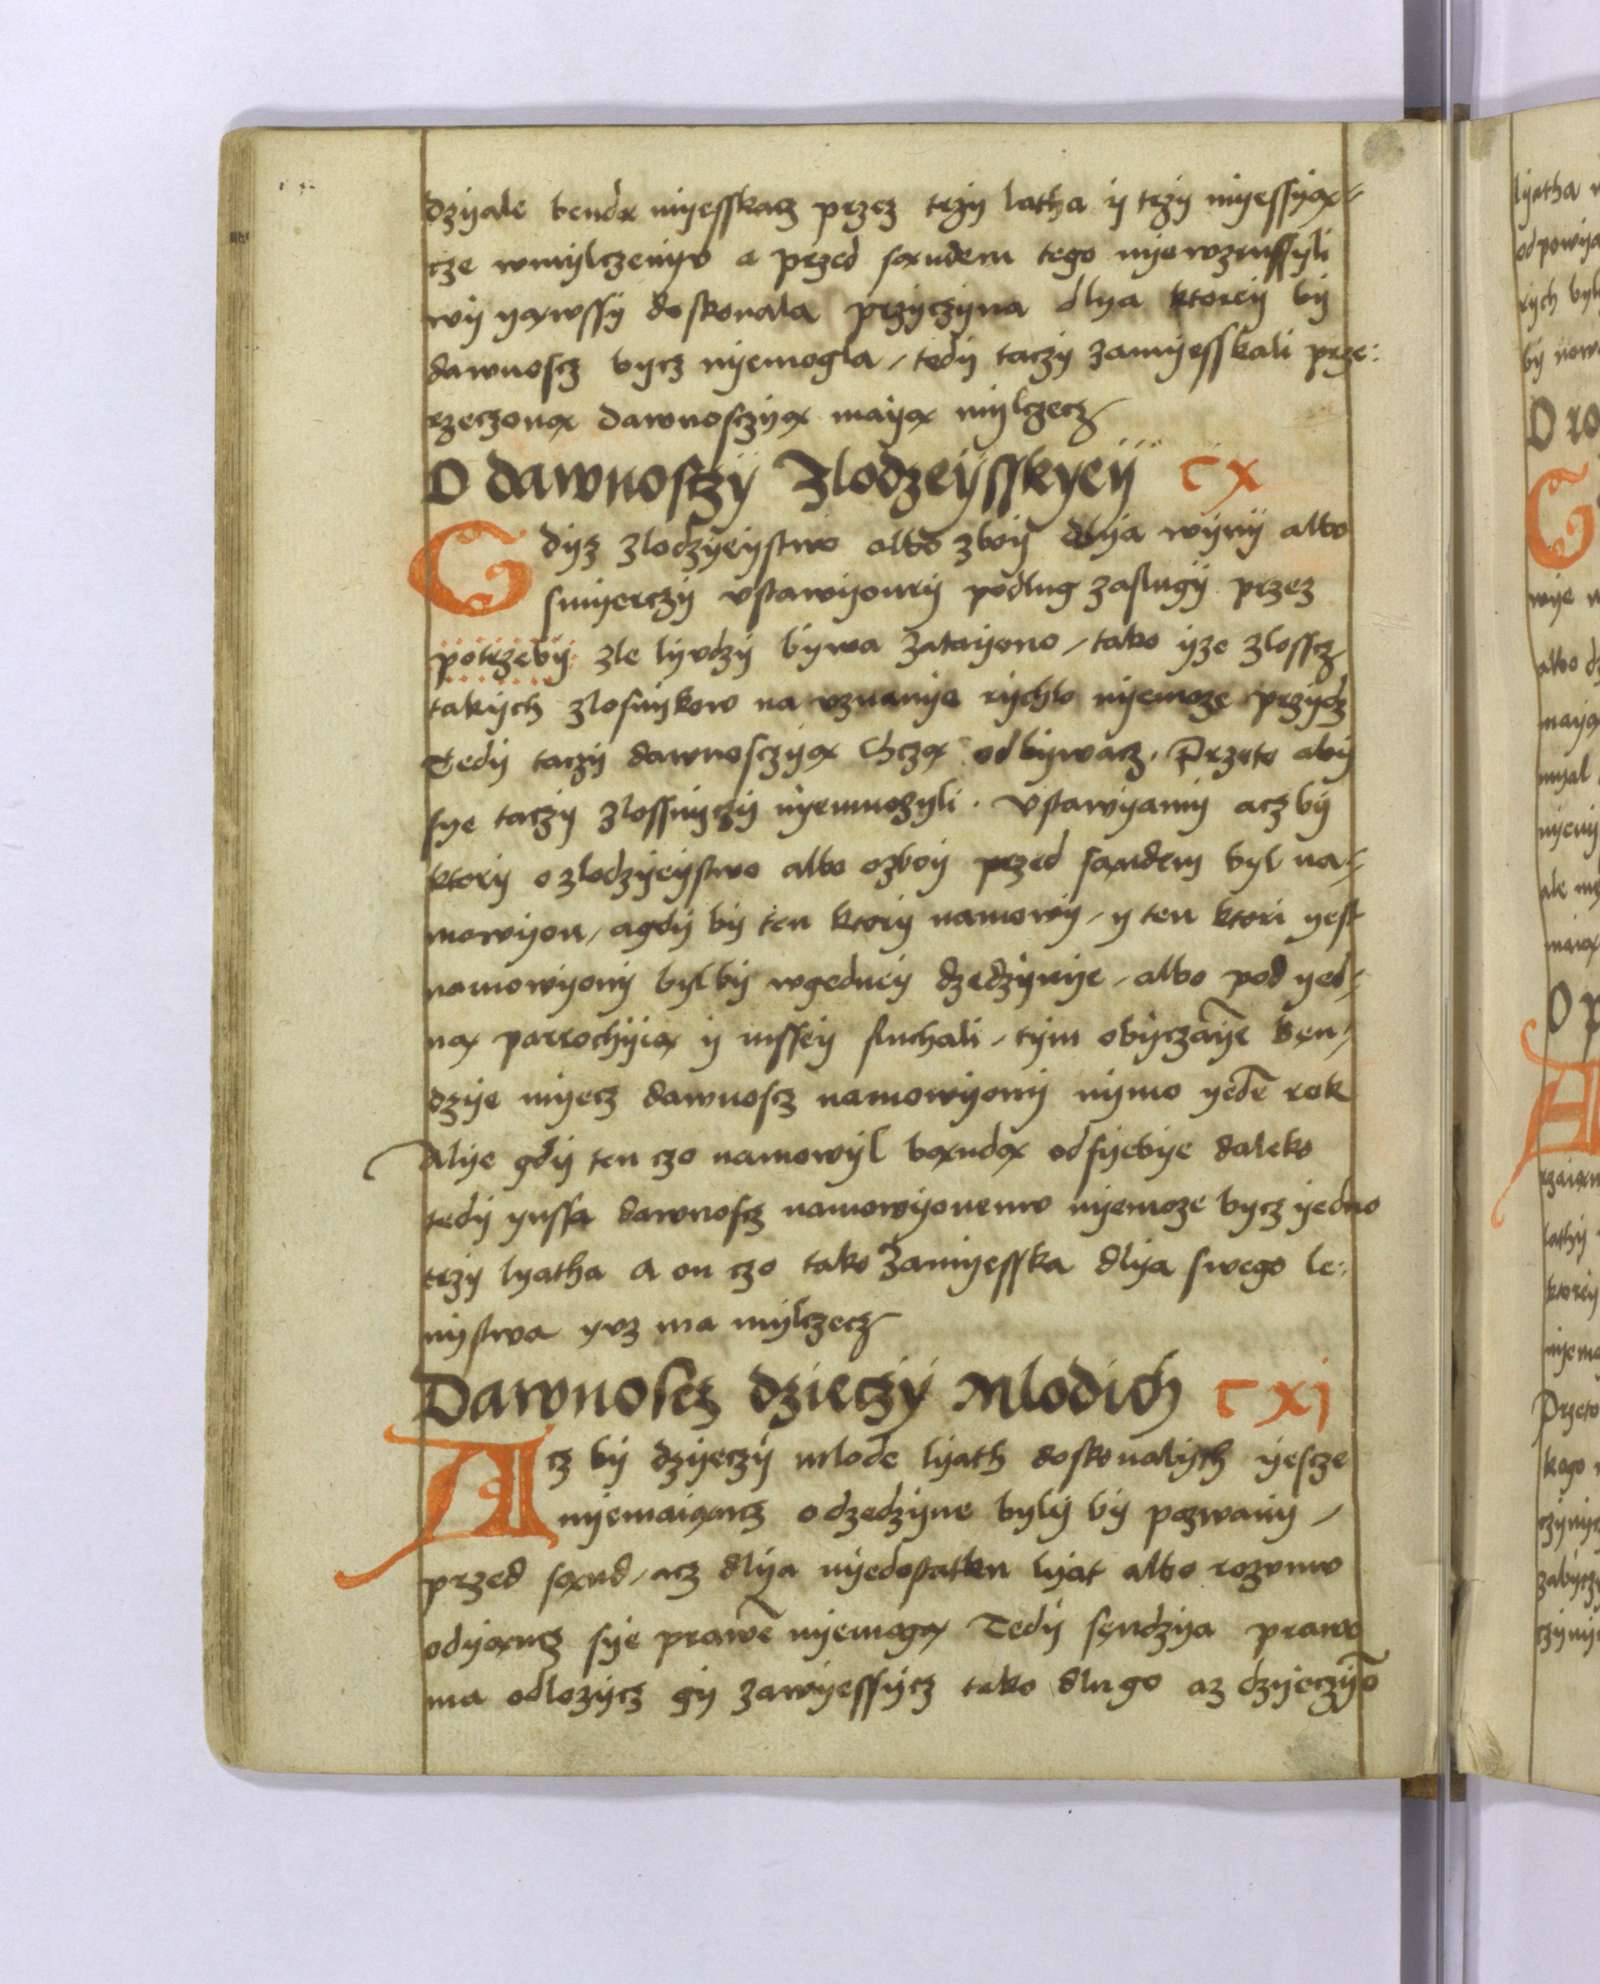 dzyale bendą myesskacz przez trzy latha y trzy myessyą-
cze wmylczenyv a przed sąndem tego nyewzrussyli
wyyyąwssy doskonala przyczyna dlya ktorey by
dawnoscz bycz nyemogla, tedy taczy zamyesskali prze:
rzeczoną dawnosczyą mayą mylczecz
O dawnosczy Zlodzeysskyey CX
Gdyz zlodzyeystwo albo zboy dlya wyny albo
smyerczy vstawyoney podlug zaslugy przez
potrzeby zle lyvdzy bywa zatayono, tako yze zlosscz
takych zlosnykow na vznanye rychlo nyemoze przydz
Tedy taczy dawnosczyą chczą odbywacz. Przeto aby
sye taczy zlossnyczy nyemnozyli. Vstawyamy acz by
ktory o zlodzyeystwo albo ozboy przed sąndem byl na-
mowyon, agdy by ten ktory namowy, y ten ktori yest
namowyony bylby wgedney dzedzynye, albo pod yed-
ną parrochyią y mssey sluchali, tym obyczaye ben-
dzye myecz dawnoscz namowyony nymo yede rok
Alye gdy ten czo namowyl bąndą odsyebye daleko
tedy ynssa dawnoscz namowyonemv nyemoze bycz yedno
trzy lyatha a on czo tako zamyesska dlya swego le:
nystwa yvz ma mylczecz
Dawnoscz dzieczy Mlodich CXI
Acz by dzyeczy mlode lyath doskonalych yescze
nyemaiącz o dzedzyne byly by pozwany,
przed sąnd, acz dlya nyedostatku lyat albo rozvmv
odyącz sye prawe nyemogą Tedy sęndzya prawo
ma odlozycz gy zawyessycz tako dlugo az dzyeczyo